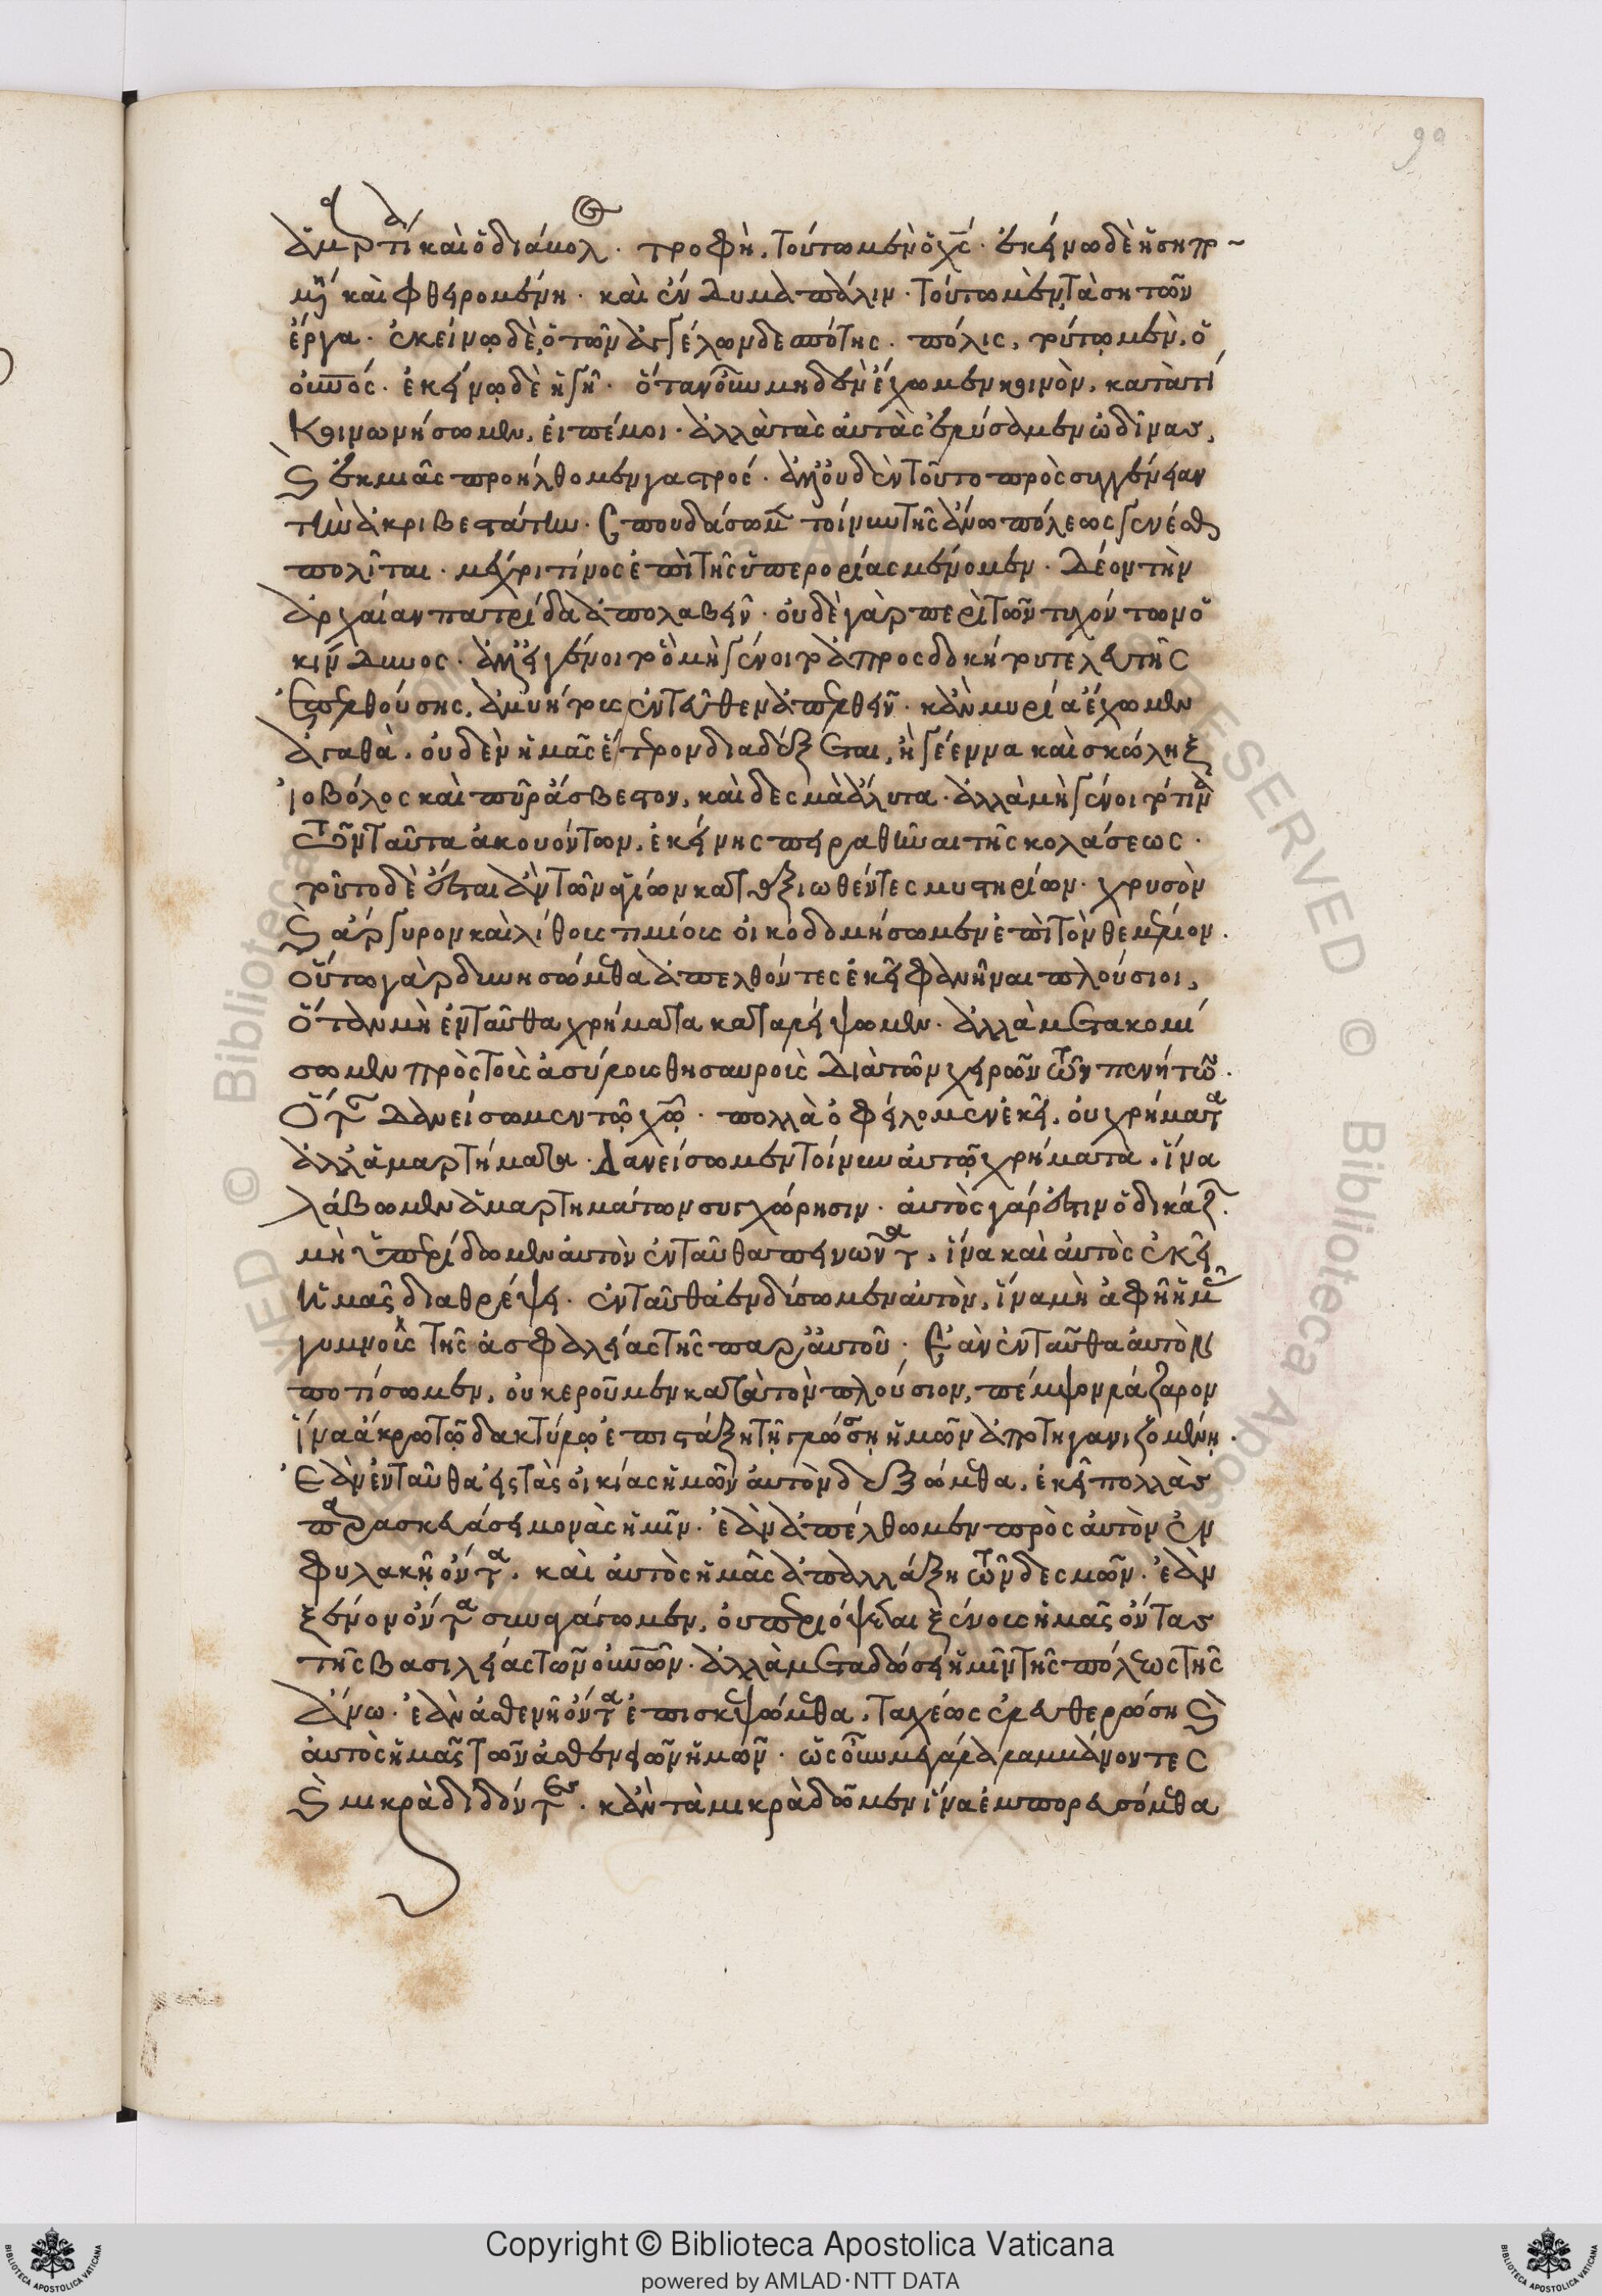 99
ἁμαρτία καὶ ὁ διάβολος. τροφὴ, τούτω μὲν ὁ χς. ἐκείνω δὲ ἡ σηπο
μένη καὶ φθειρομένη. καὶ ἔνδυμα πάλιν. τούτω μὲν, τὰ σητῶν
ἔργα. ἐκείνῳ δὲ, ὁ τῶν ἀγγέλων δεσπότης. πόλις, τούτῳ μὲν, ὁ
οὐνός. ἐκείνῳ δὲ ἡ γῆ. ὅταν οὖν μηδὲν ἔχωμεν κοινὸν, κατὰ τί
κοινωνήσωμεν, εἰπέ μοι. ἀλλὰ τὰς αὐτὰς ἐλύσαμεν ὠδῖνας,
καὶ ἐκ μιᾶς προήλθομεν γαστρός. ἀλλ' οὐδὲν τοῦτο πρὸς συγγένειαν
τὴν ἀκριβεστάτην. σπουδάσωμεν τοίνυν τῆς ἄνω πόλεως γενέσθαι
πολῖται. μέχρι τίνος ἐπὶ τῆς ὑπερορίας μένομεν. δέον τὴν
ἀρχαίαν πατρίδα ἀπολαβεῖν. οὐδὲ γὰρ περὶ τῶν τυχόντων ὁ
κίνδυνος. ἀλλ' εἰ γένοιτο ὃ μὴ γένοιτο ἀπροσδοκήτου τελευτῆς
ἐπελθούσης, ἀμυήτους ἐντεῦθεν ἀπελθεῖν. κἂν μυρία ἔχωμεν
ἀγαθὰ, οὐδὲν ἡμᾶς ἕτερον διαδέξεται, ἢ γέεννα καὶ σκώληξ
ἰοβόλος καὶ πῦρ ἄσβεστον, καὶ δεσμὰ ἄλυτα. ἀλλὰ μὴ γένοιτό τινα
τῶν ταῦτα ἀκουόντων, ἐκείνης πειραθῆναι τῆς κολάσεως.
τοῦτο δὲ ἔσται ἂν τῶν ἁγίων καταξιωθέντες μυστηρίων. χρυσὸν
καὶ ἄργυρον καὶ λίθοις τιμίοις οἰκοδομήσωμεν ἐπὶ τὸν θεμέλιον.
οὕτω γὰρ δυνησώμεθα ἀπελθόντες ἐκεῖ φανῆναι πλούσιοι,
ὅταν μὴ ἐνταῦθα χρήματα καταλείψωμεν. ἀλλὰ μετακομί
σωμεν πρὸς τοῖς ἀσύλοις θησαυροῖς διὰ τῶν χειρῶν τῶν πενήτων.
ὅταν δανείσωμεν τῷ χῷ. πολλὰ ὀφείλομεν ἐκεῖ, οὐ χρήματα
ἀλλ' ἁμαρτήματα. δανείσωμεν τοίνυν αὐτῷ χρήματα. ἵνα
λάβωμεν ἁμαρτημάτων συγχώρησιν. αὐτὸς γάρ ἐστιν ὁ δικάζων.
μὴ ὑπερίδωμεν αὐτὸν ἐνταῦθα πεινῶντα, ἵνα καὶ αὐτὸς ἐκεῖ
ἡμᾶς διαθρέψει. ἐνταῦθα ἐνδύσωμεν αὐτὸν, ἵνα μὴ ἀφῇ ἡμᾶς
γυμνοὺς τῆς ἀσφαλείας τῆς παρ' αὐτοῦ. ἐὰν ἐνταῦθα αὐτὸν
ποτίσωμεν, οὐκ ἐροῦμεν κατὰ τὸν πλούσιον, πέμψον λάζαρον
ἵνα ἄκρῳ τῷ δακτύλῳ ἐπιστάξῃ τῇ γλώσσῃ ἡμῶν ἀποτηγανιζομένῃ.
ἐὰν ἐνταῦθα εἰς τὰς οἰκίας ἡμῶν αὐτὸν δεξώμεθα, ἐκεῖ πολλὰς
παρασκευάσει μονὰς ἡμῖν. ἐὰν ἀπέλθωμεν πρὸς αὐτὸν ἐν
φυλακῇ ὄντα. καὶ αὐτὸς ἡμᾶς ἀπαλλάξῃ τῶν δεσμῶν. ἐὰν
ξένον ὄντα συναγάγωμεν, οὐ περιόψεται ξένους ἡμᾶς ὄντας
τῆς βασιλείας τῶν οὐνῶν. ἀλλὰ μεταδώσει ἡμῖν τῆς πόλεως τῆς
ἄνω. ἐὰν ἀσθενῆ ὄντα ἐπισκεψώμεθα, ταχέως ἐλευθερώσῃ καὶ
αὐτὸς ἡμᾶς τῶν ἀσθενειῶν ἡμῶν. ὡς οὖν μεγάλα λαμβάνοντες
καὶ μικρὰ διδόντες. κἂν τὰ μικρὰ δῶμεν ἵνα ἐμπορευσόμεθα
Copyright © Biblioteca Apostolica Vaticana
powered by AMLAD·NTT DATA